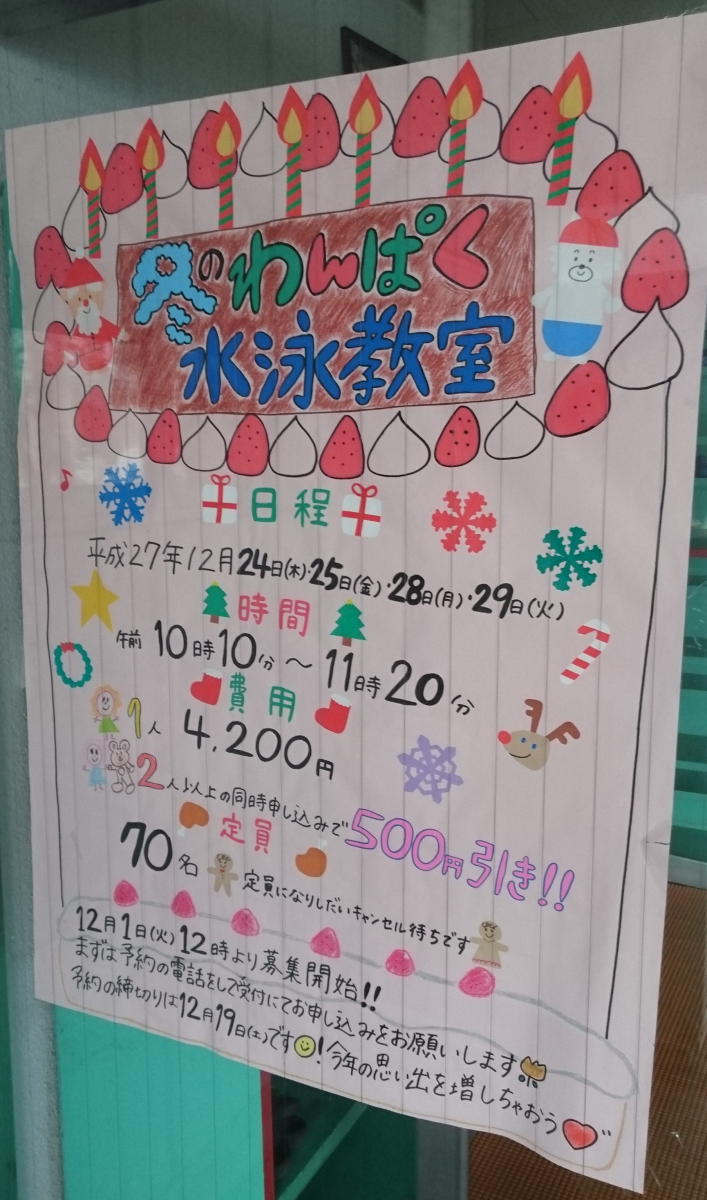 冬のわんぱく
水泳教室
日程
平成27年12月24日(木)・25日(金)・28日(月)・29日(火)
時間
午前 10時10分 ～ 11時20分
費用
1人 4,200円
2人以上の同時申し込みで500円引き!!
定員
70名 定員になりしだいキャンセル待ちです
12月1日(火)12時より募集開始!!
まずは予約の電話をして受付にてお申し込みをお願いします
予約の締切りは12月19日(土)です!今年の思い出を増しちゃおう